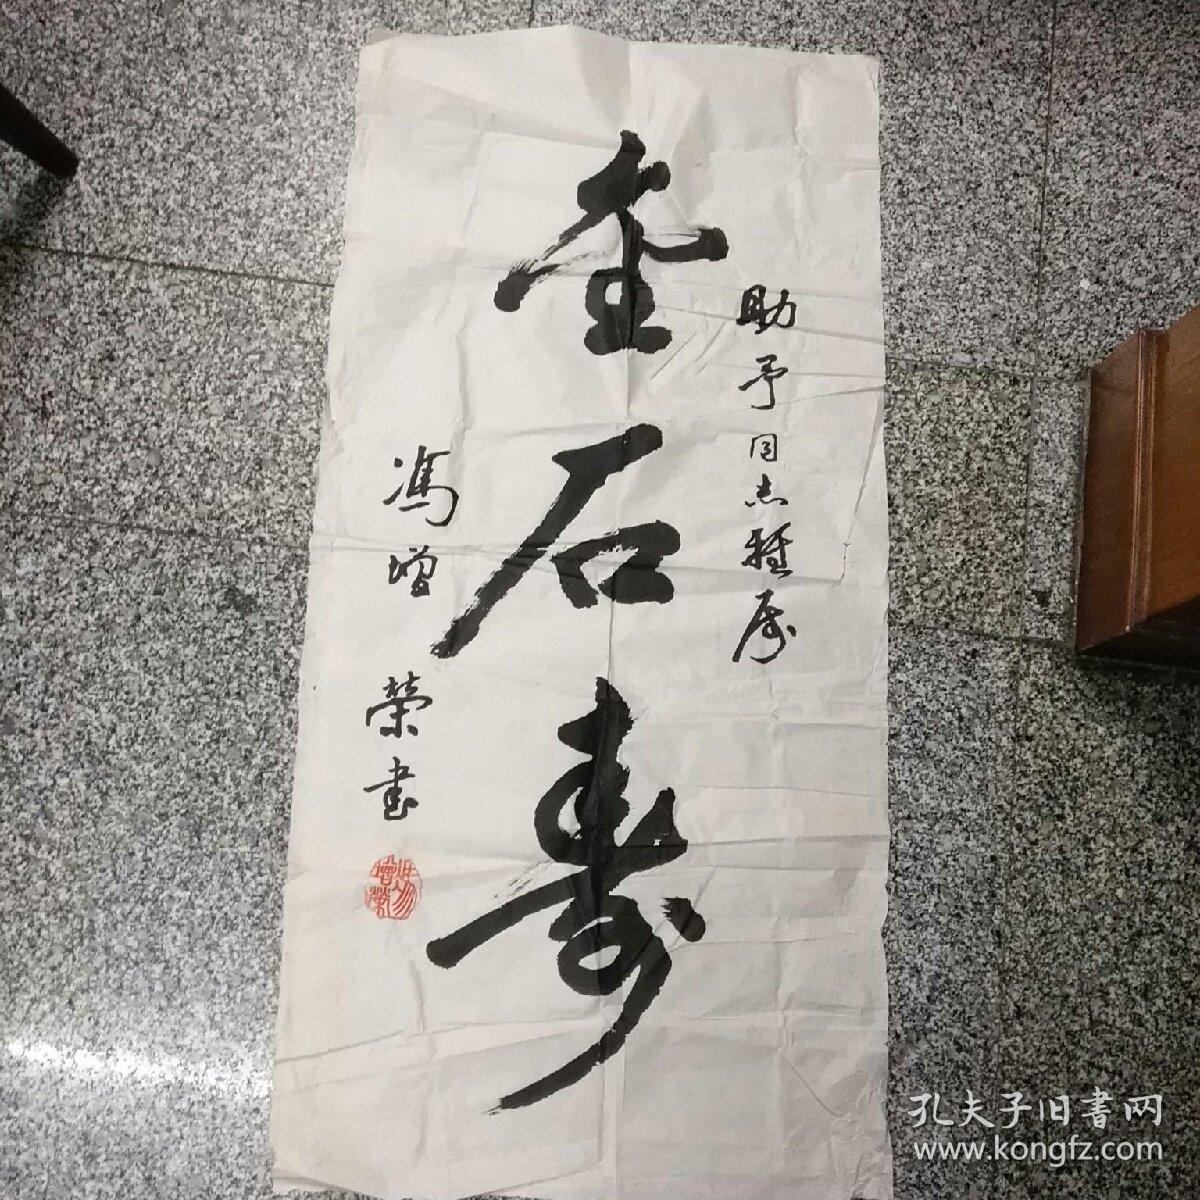 助予同志雅属
金石寿
冯增荣书
冯增荣
孔夫子旧書网
www.kongfz.com